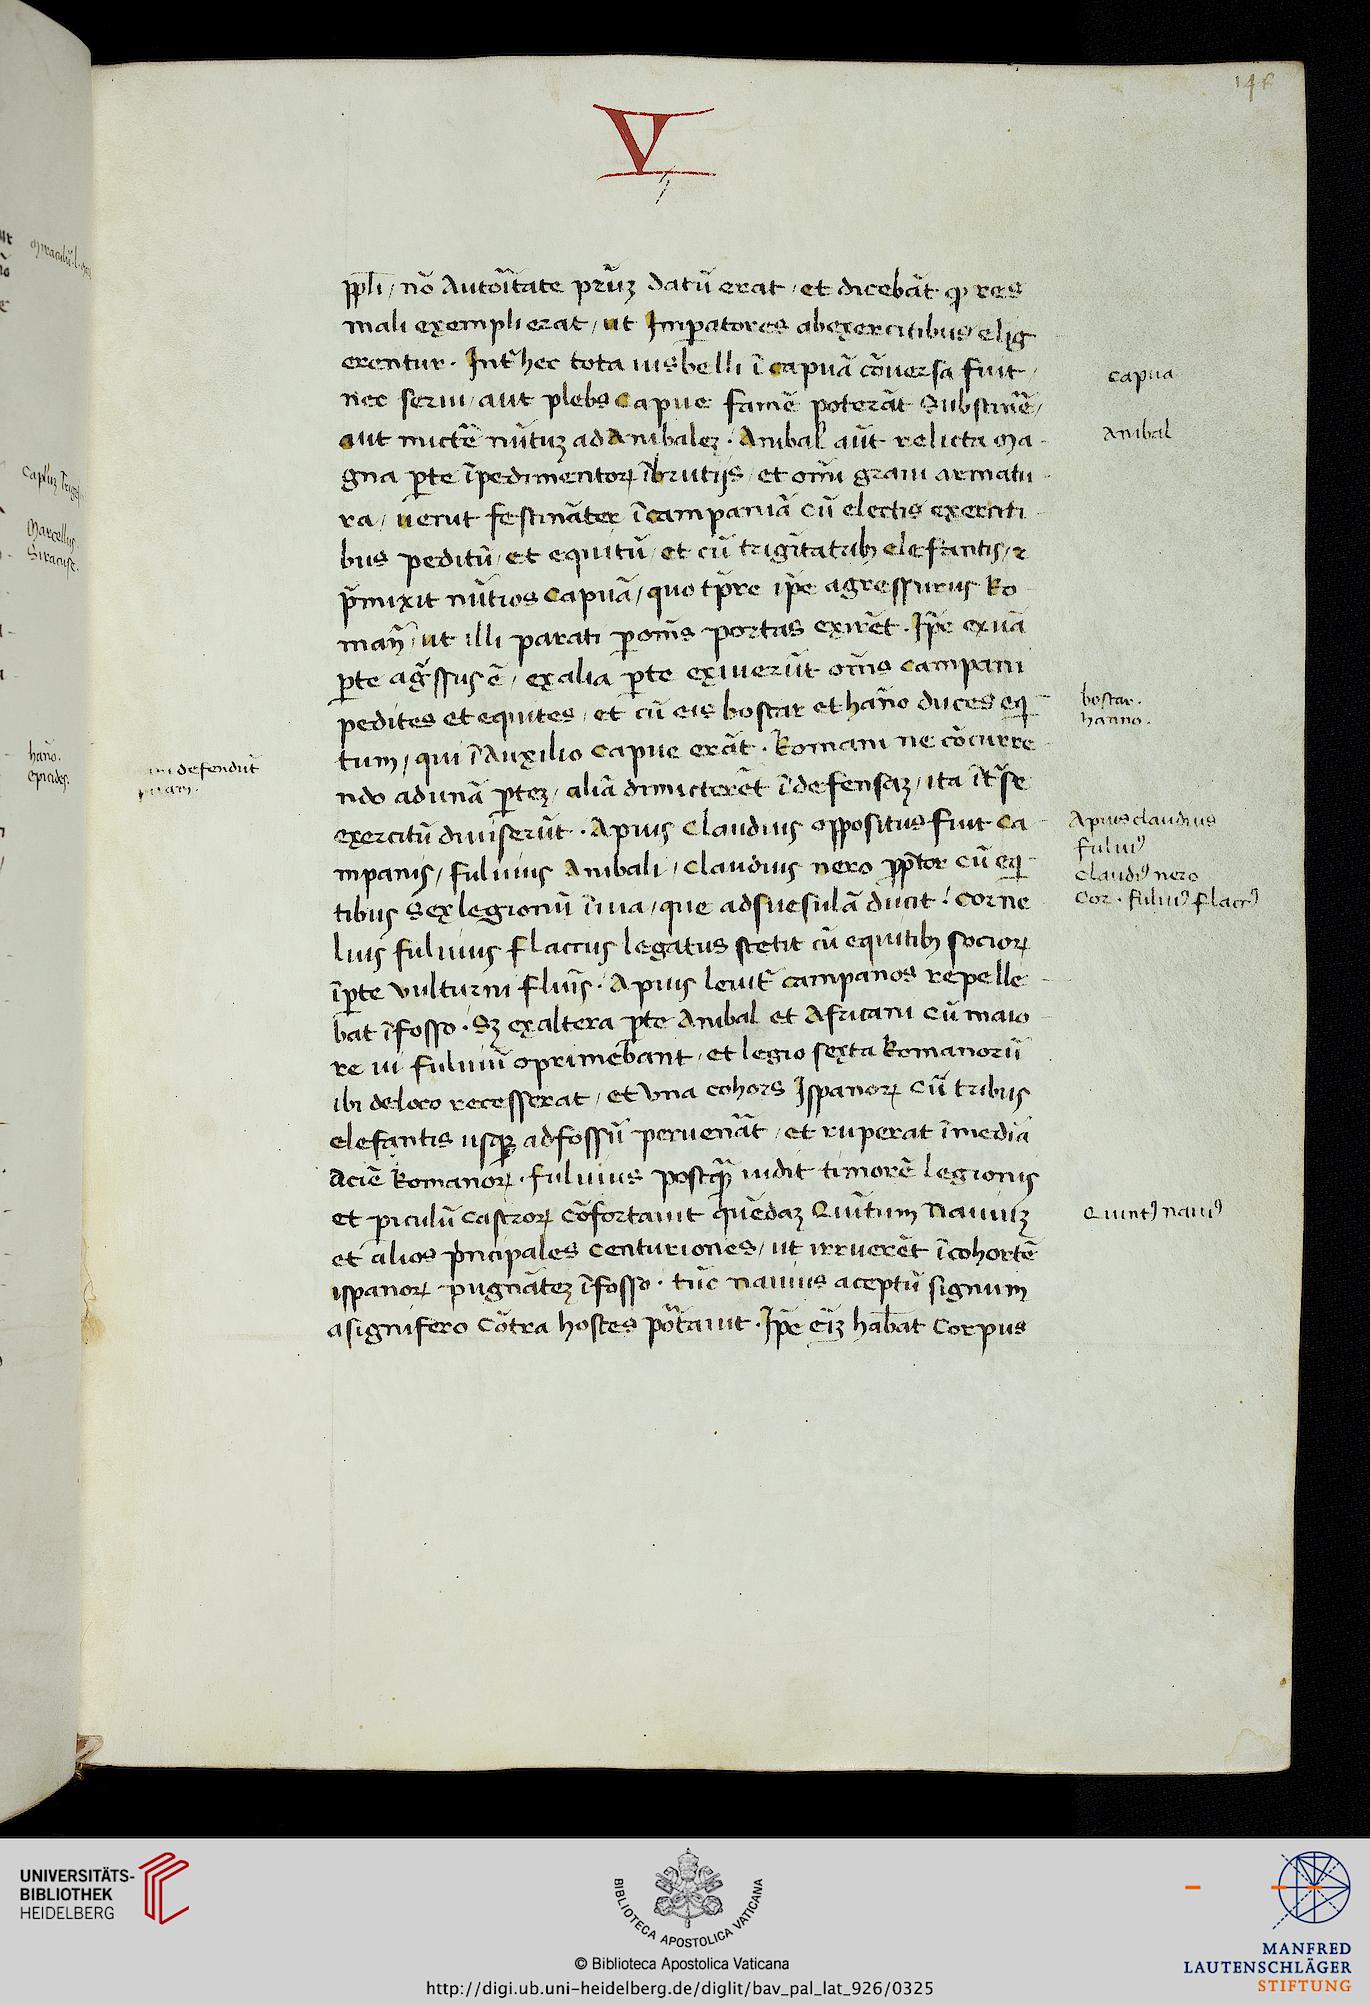 146
V
ppłi / nō Autoritate prūz datū erat / et dicebāt ꝙ res
mali exempli erat / ut Imperatores abexercitibus elig
erentur . Int̄ hec tota uis belli ī capuā cōuersa fuit /
nec serui / aut plebs Capue famē poterāt Substinē /
aut mictē nūtuz ad Anibalez . Anibal aūt relicta Ma
gna ꝑte īpedimentoꝝ ī brutijs / et omī graui armatu
ra / uenit festināter ī campaniā cū electis exerciti
bus peditū / et equitū / et cū trigītatribꝫ elefantis / ⁊
p̄mixit nūtios Capuā / quo tp̄re ip̄e agressurus Ro
man̄ / ut illi parati ꝑ om̄s portas exirēt . Ip̄e ex uā
ꝑte ag̃ssus ē / exalia ꝑte exiuerūt om̄s Campani
pedites et equites / et cū eis bostar et hān̄o duces eqi
tum / qui ī Auxilio Capue erāt . Romani ne cōcurre
ndo ad unā ꝑtez / aliā dimicterēt ī defensaz / ita īt̄ se
exercitū diuiserūt . Apius Claudius oppositus fuit Ca
mpanis / fuluius Anibali / Claudius nero ꝓp̄tor cū eqi
tibus Sex legionū ī uia / que ad suesulā ducit . Corne
lius fuluius flaccus legatus stetit cū equitibꝫ socioꝝ
ī ꝑte Vulturni fluīs . Apius leuit̄ campanos repelle
bat ī fosso . Sꝫ ex altera ꝑte Anibal et Africani cū maio
re ui fuluiū oprimebant / et legio sexta Romanorū
ibi de loco recesserat / et Vna cohors Ispanoꝝ cū tribus
elefantis usqꝫ ad fossū peruenāt / et ruperat ī media
Aciē Romanoꝝ . fuluius postqꝫ uidit timorē legionis
et ꝑiculū castroꝝ cōfortauit quēdaz Quītum Nauiuz
et alios p̄ncipales Centuriones / ut irruerēt ī cohortē
ispanoꝝ pugnātez ī fosso . tūc nauius aceptū signum
a signifero cōtra hostes portauit . Ip̄e eīz habat Corpus
Capua
Anibal
bostar .
hanno .
Apius claudius
fuluiꝰ
Claudiꝰ nero
Cor . fuluiꝰ flaccꝰ
Quintꝰ nauiꝰ
defendūt
Marcellus
Siracuse .
hāno .
epicides .
UNIVERSITÄTS-
BIBLIOTHEK
HEIDELBERG
BIBLIOTECA APOSTOLICA VATICANA
© Biblioteca Apostolica Vaticana
http://digi.ub.uni-heidelberg.de/diglit/bav_pal_lat_926/0325
MANFRED
LAUTENSCHLÄGER
STIFTUNG